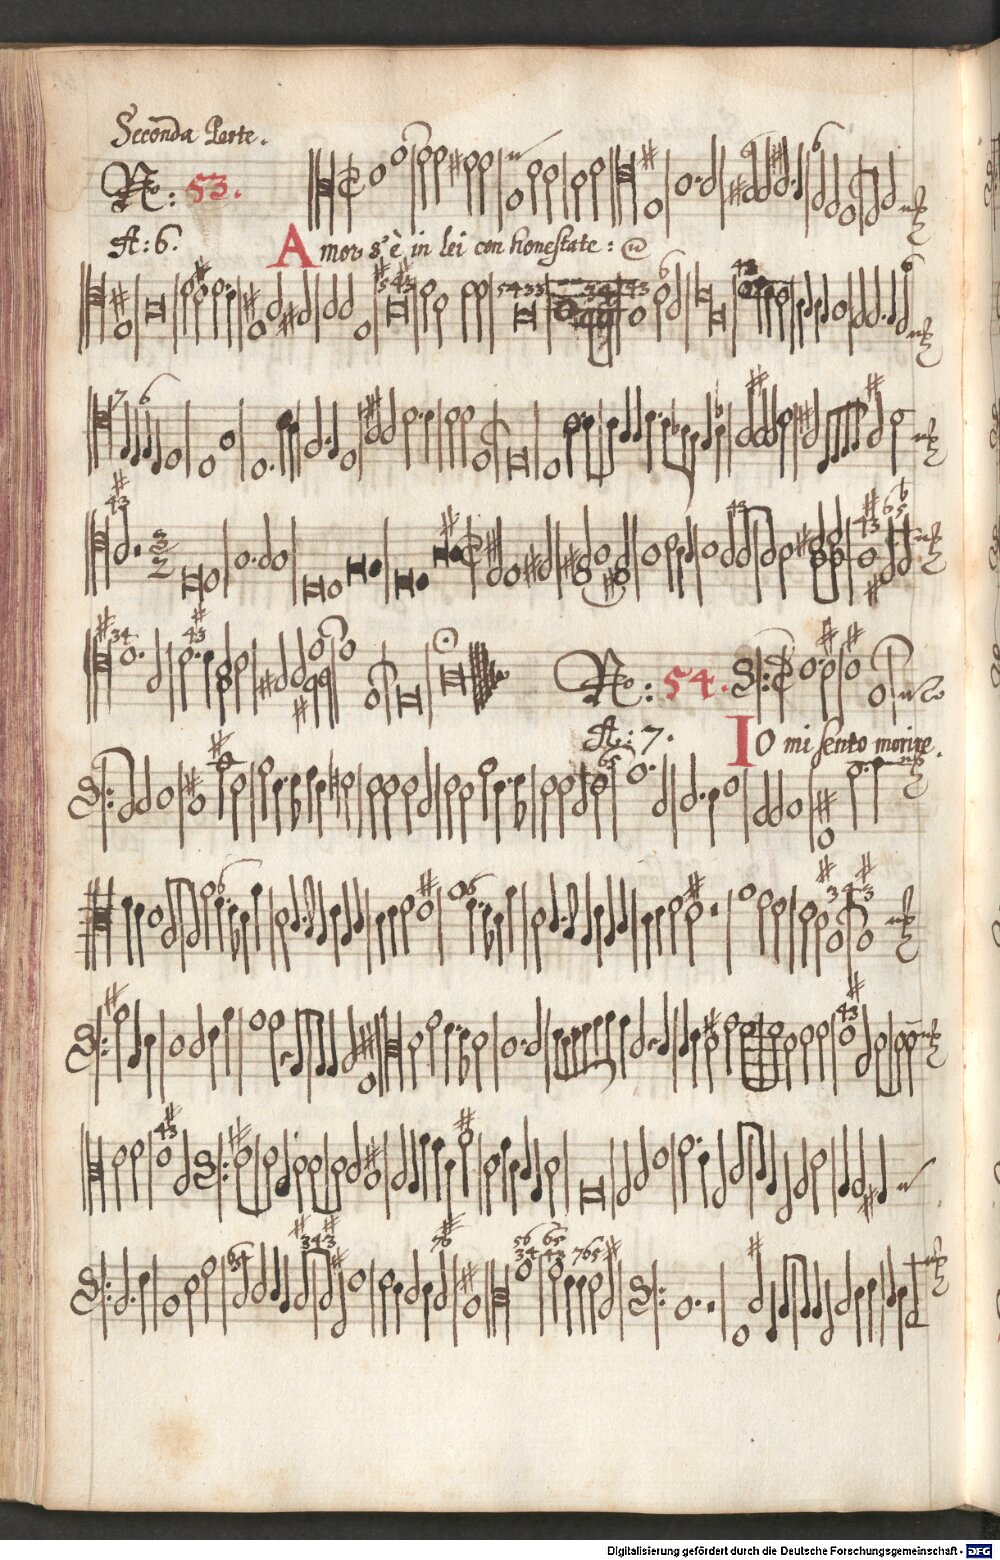 Seconda Parte.
No: 53.
A: 6.
Amor s'è in lei con honestate:
No: 54.
A: 7.
Io mi sento morire.
Digitalisierung gefördert durch die Deutsche Forschungsgemeinschaft - DFG